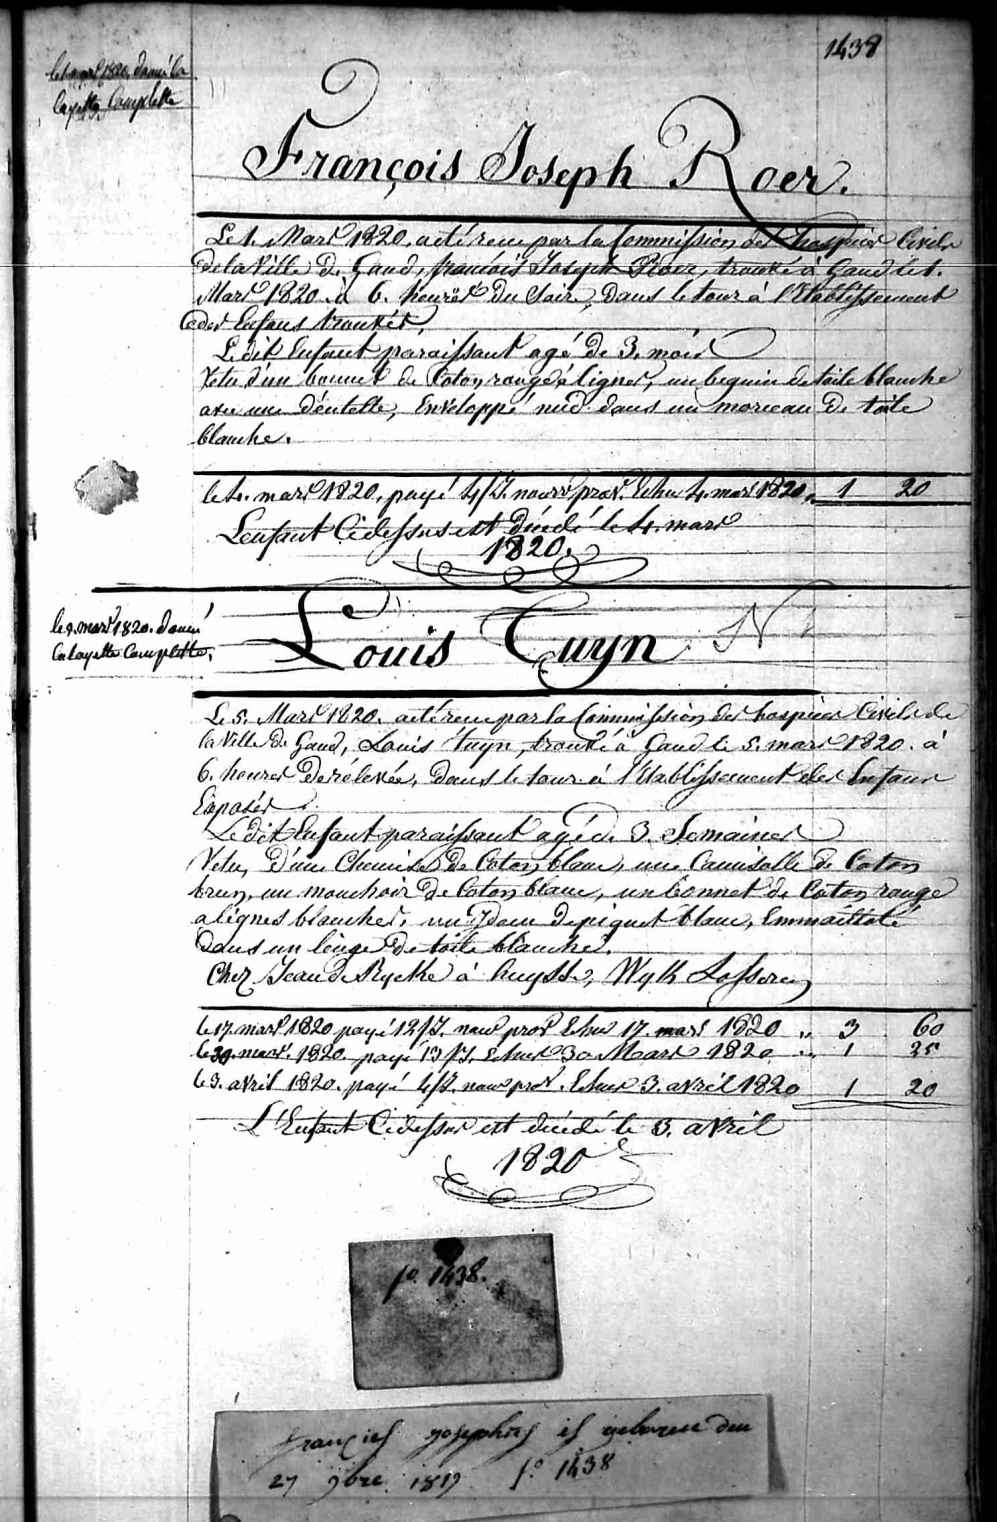 1438
donné la
layette Complette
François Joseph Roer.
Le 1. Mars 1820. acté reçu par la Commission des hospices Civils
de la Ville De Gand, françois Joseph Roer, trouvé à Gand le 1.
Mars 1820. à 6. heures Du Soir, Dans le tour à l'Etablissement
des Enfans trouvés,
Le dit Enfant paraissant agé De 3. mois
Vetu d'un bonnet de Coton rouge à lignes, un beguin de toile blanche
avec une déntelle, Enveloppé nud dans un morceau De toile
blanche.
le 4. mars 1820. payé 4/J. nourr prov. Echu 4. mars 1820 " 1 20
L'enfant Cidessus est Décédé le 4. mars
1820.
le 9. mars 1820. donné
la layette Complette.
Louis Tuyn N
Le 5. Mars 1820. acté reçu par la Commission des hospices Civils de
la Ville De Gand, Louis Tuyn, trouvé à Gand le 5. mars 1820. à
6. heures De rélevée, Dans le tour à l'Etablissement des Enfans
Exposés
Le dit Enfant paraissant agé de 3. Semaines
Vetu, D'une Chemise De Coton blanc, une Camisolle de Coton
brun, un mouchoir De Coton blanc, un bonnet de Coton rouge
a lignes blanches, un de piquet blanc, Emmailloté
Dans un linge De toile blanche.
Chez Jean de Rycke à huysse, Wyk Lossere
le 17. mars 1820 payé 12/J. nour prov Echu 17. mars 1820 " 3 60
le 30. mars. 1820. payé 13/J. Echus 30 Mars 1820 " 1 25
le 3. avril 1820. payé 4/J. nour prov. Echus 3. avril 1820 1 20
L'Enfant Cidessus est décédé le 3. avril
1820
fo. 1438.
françies josephus is geboren den
27 9bre 1819 fo 1438